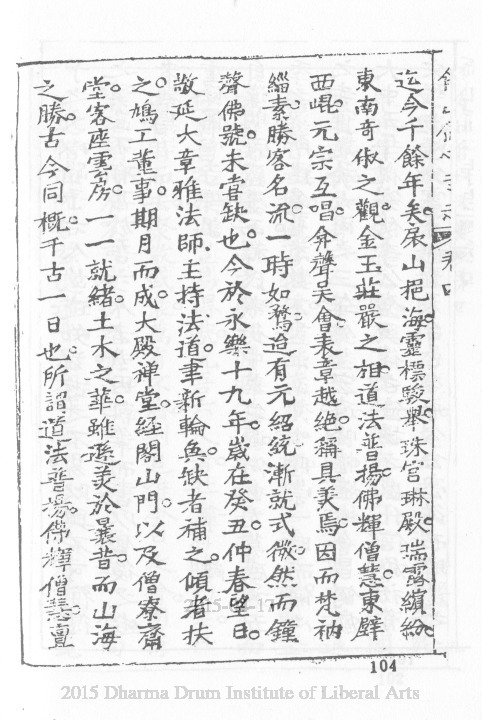 迄今千餘年矣。展山挹海。靈標駿舉。珠宮琳殿。瑞靄繽紛。
東南奇俶之觀。金玉莊嚴之相。道法普揚。佛輝僧慧。東壁
西崐。元宗互唱。弁聲吴會。表章越絶。稱具美焉。因而梵衲
緇素。勝客名流。一時如鶩。迨有元紹統。漸就式微。然而鐘
聲佛號。未嘗缺也。今於永樂十九年。歲在癸丑。仲春望日。
敬延大章雅法師。主持法道。聿新輪奐。缺者補之。傾者扶
之。鳩工董事。期月而成。大殿禅堂。經閣山門。以及僧寮齋
堂。客座雲房。一一就緒。土木之華。雖遜美於曩昔。而山海
之勝。古今同概。千古一日也。所謂道法普揚。佛輝僧慧。亶
104
2015 Dharma Drum Institute of Liberal Arts